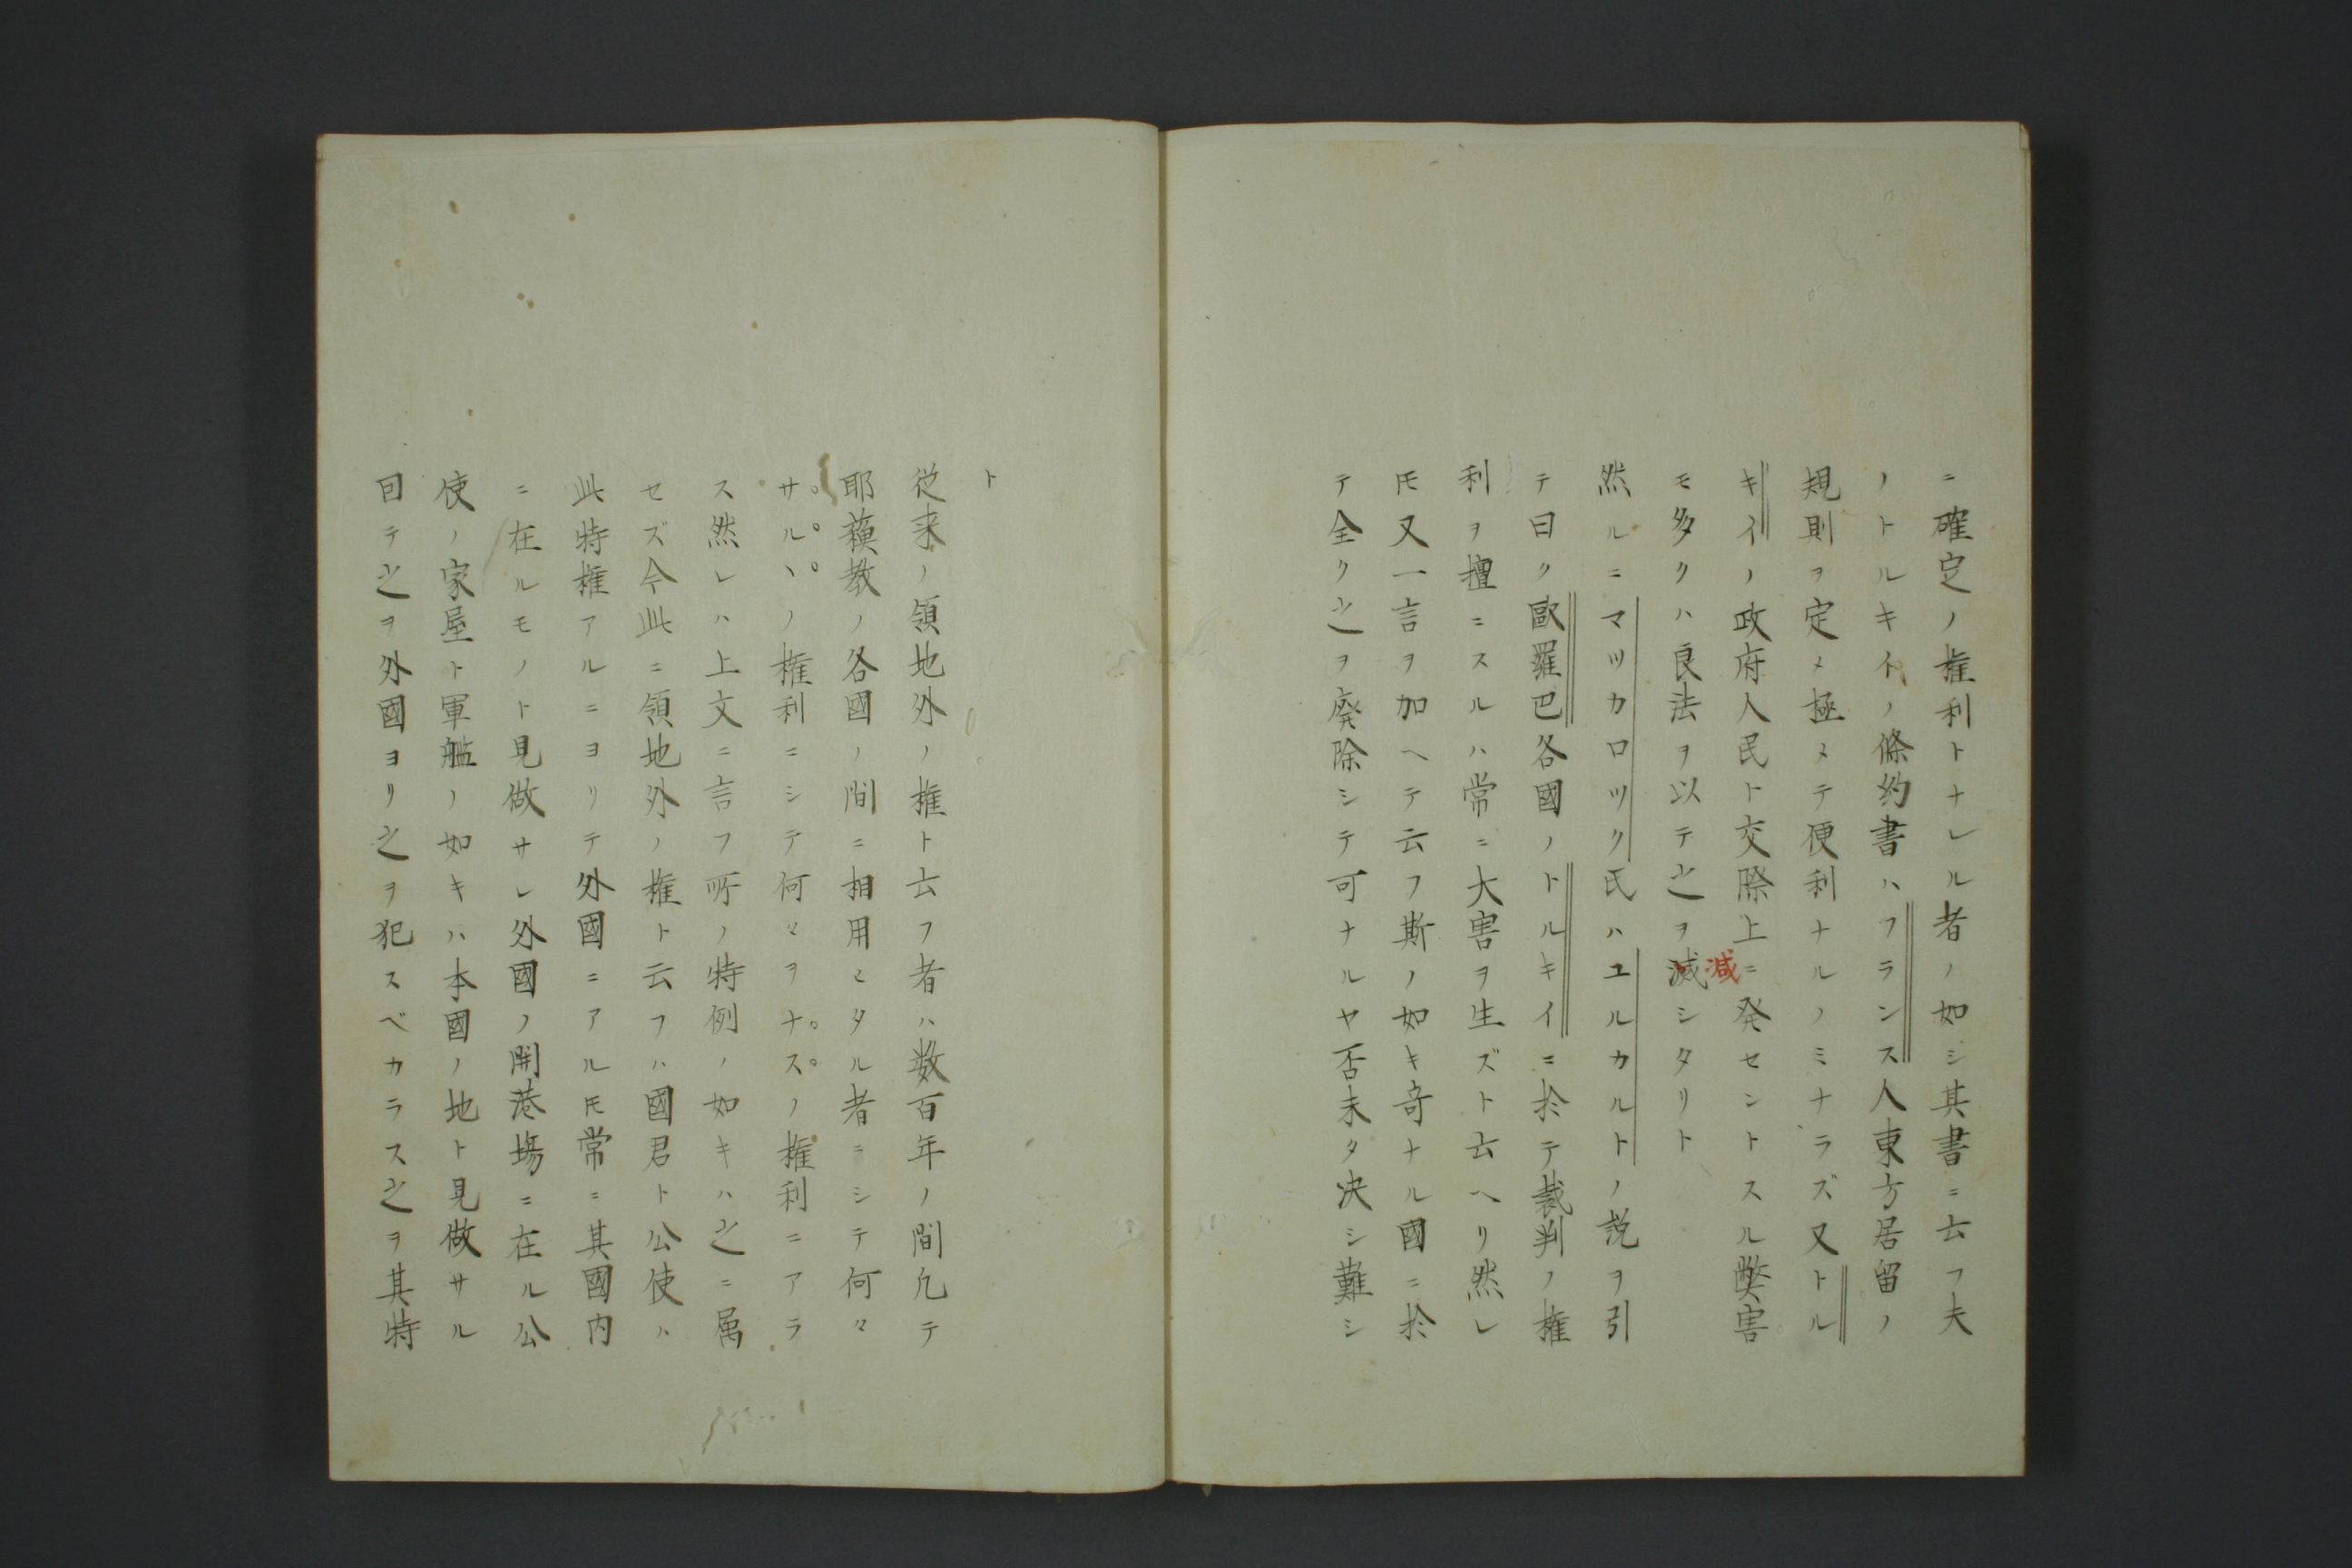 ニ確定ノ権利トナレル者ノ如シ其書ニ云フ夫
ノトルキイノ條約書ハフランス人東方居留ノ
規則ヲ定メ極メテ便利ナルノミナラズ又トル
キイノ政府人民ト交際上ニ発セントスル弊害
モ多クハ良法ヲ以テ之ヲ滅シタリト
減
然ルニマツカロツク氏ハユルカルトノ説ヲ引
テ曰ク歐羅巴各國ノトルキイニ於テ裁判ノ権
利ヲ擅ニスルハ常ニ大害ヲ生ズト云ヘリ然レ
𪜈又一言ヲ加ヘテ云フ斯ノ如キ奇ナル國ニ於
テ全ク之ヲ廃除シテ可ナルヤ否未タ决シ難シ
ト
従来ノ領地外ノ権ト云フ者ハ数百年ノ間凢テ
耶蘓教ノ各國ノ間ニ相用ヒタル者ニシテ何々
サルヽノ権利ニシテ何々ヲナスノ権利ニアラ
ス然レハ上文ニ言フ所ノ特例ノ如キハ之ニ属
セズ今此ニ領地外ノ権ト云フハ國君ト公使ハ
此特権アルニヨリテ外國ニアル𪜈常ニ其國内
ニ在ルモノト見做サレ外國ノ開港塲ニ在ル公
使ノ家屋ト軍艦ノ如キハ本國ノ地ト見做サル
回テ之ヲ外國ヨリ之ヲ犯スベカラス之ヲ其特